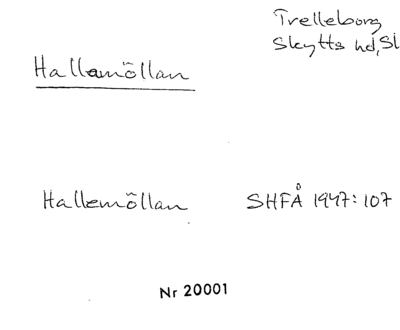 Trelleborg
Skytts hd, Sk
Hallamöllan
Hallemöllan SHFÅ 1947:107
Nr 20001